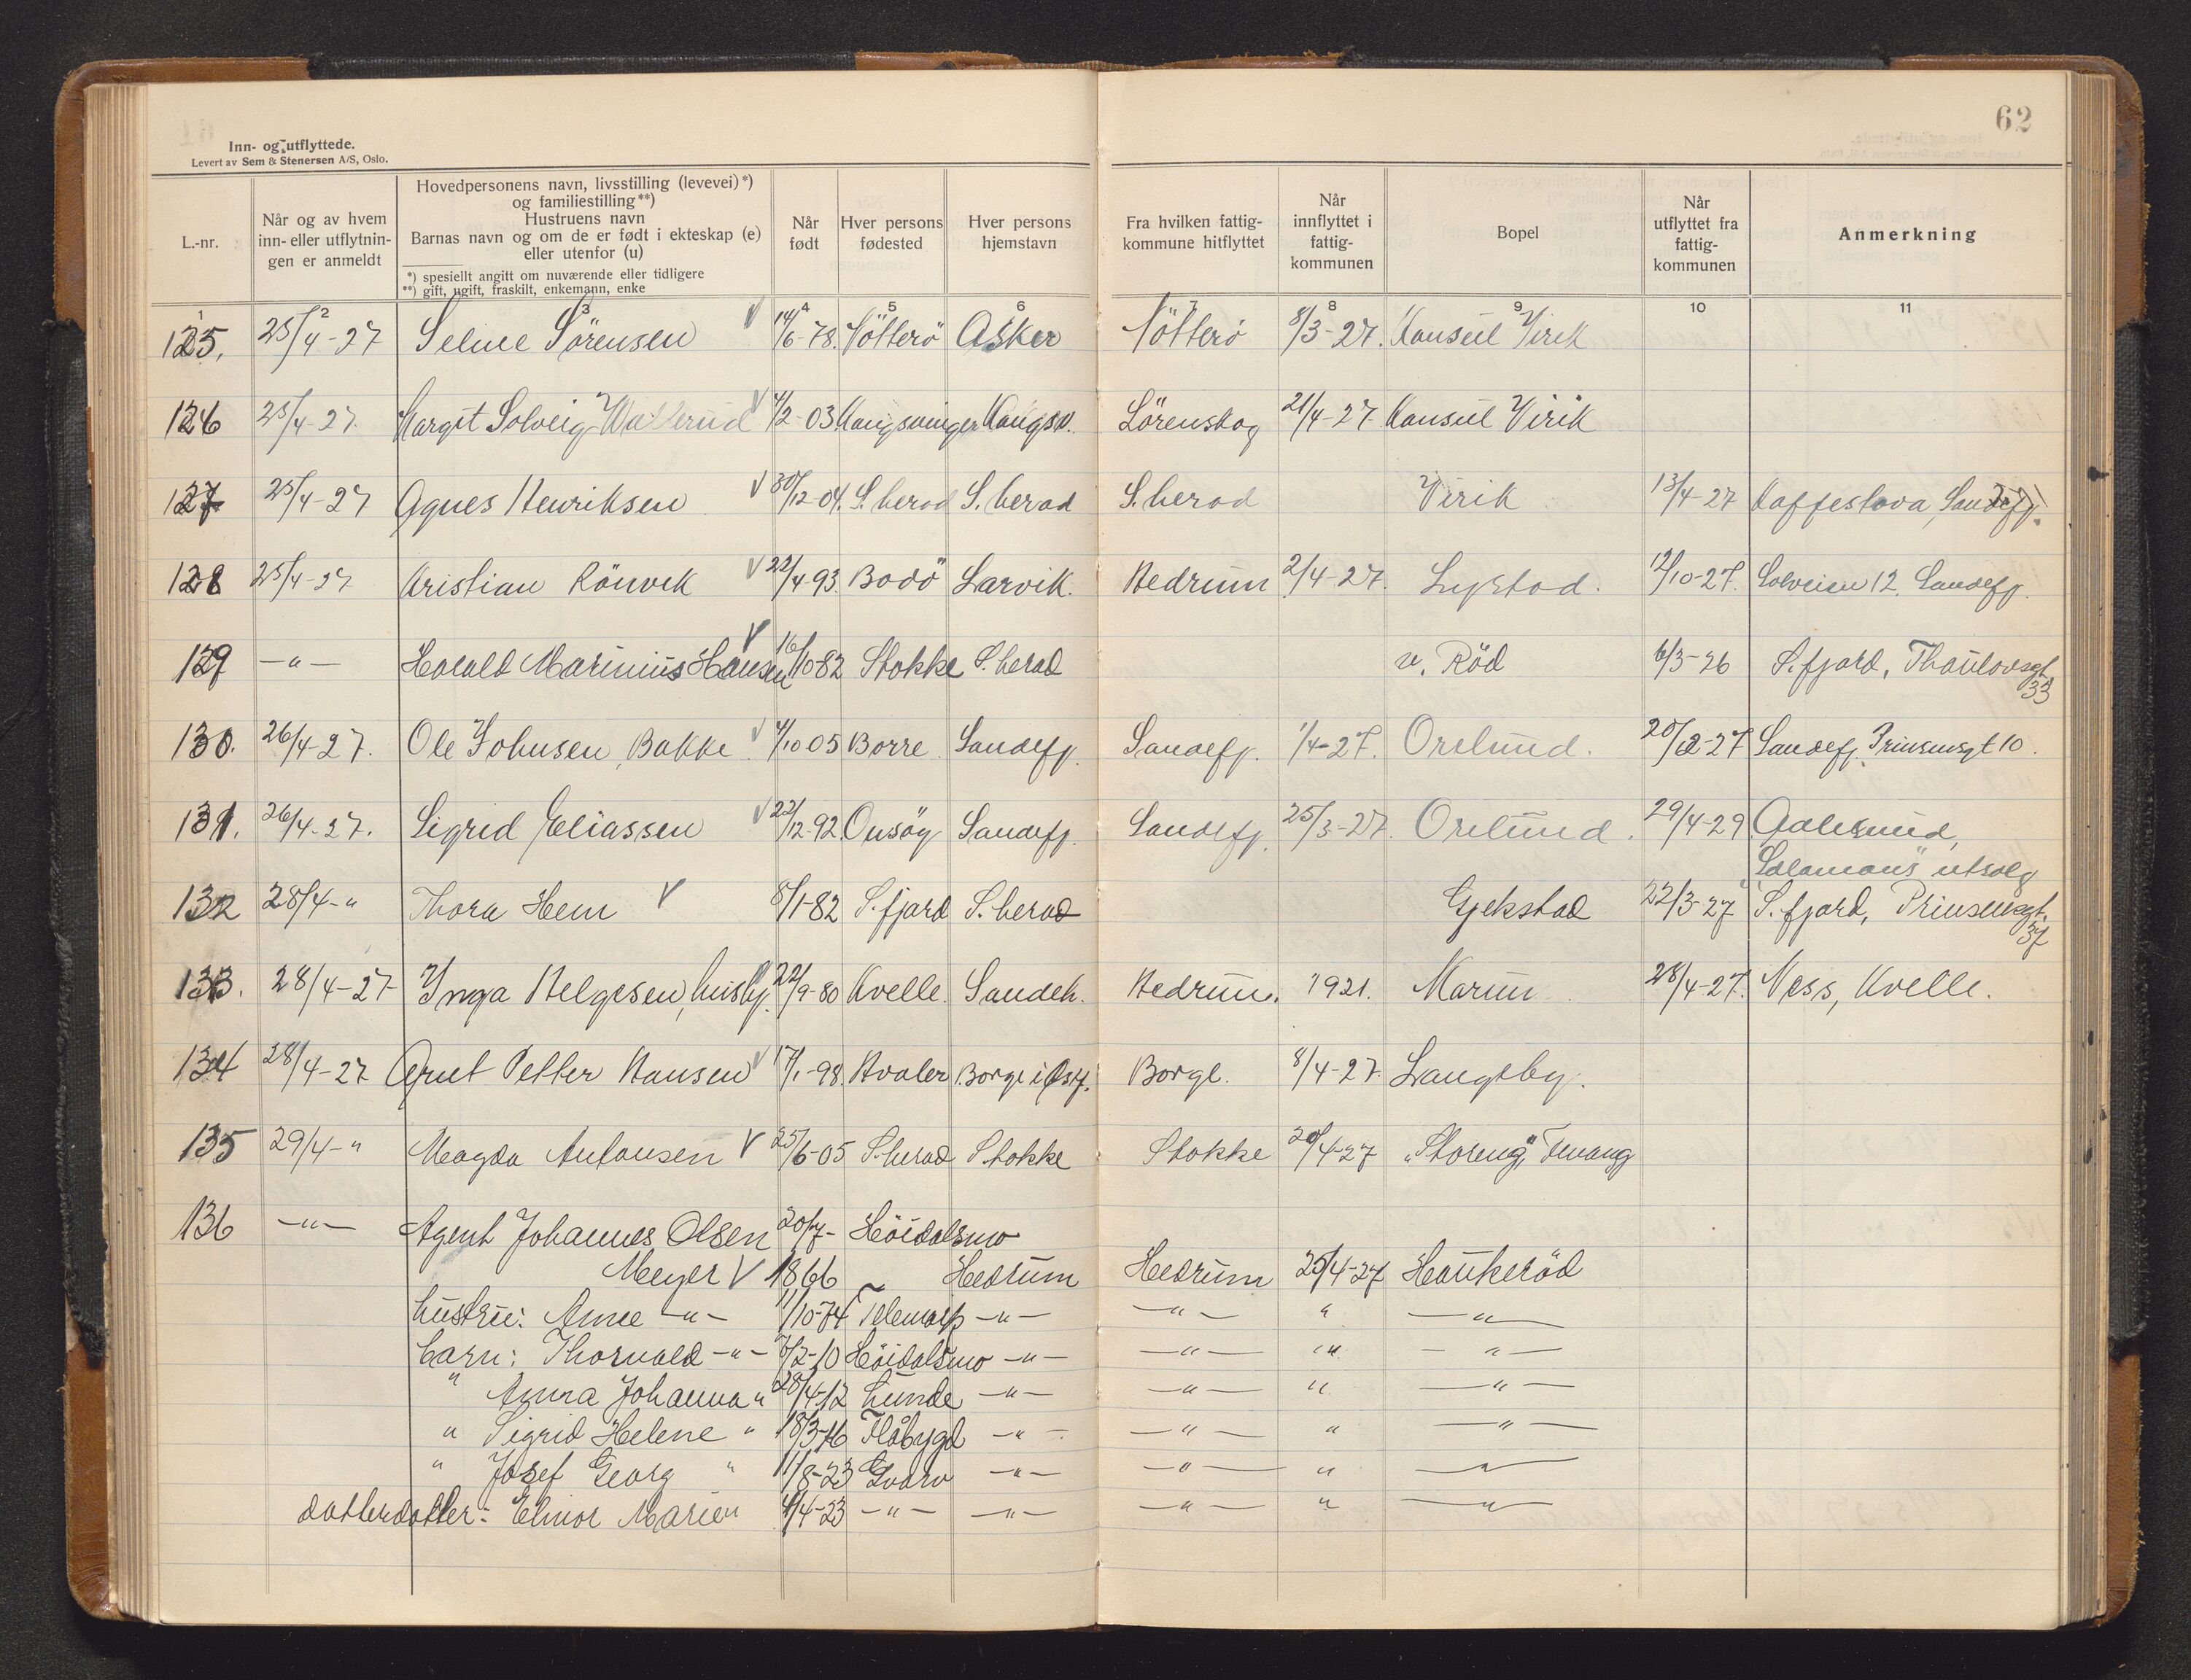 62
Inn- og utflyttede.
Levert av Sem & Stenersen A/S, Oslo.
L.-nr. | Når og av hvem inn- eller utflytnin-gen er anmeldt | Hovedpersonens navn, livsstilling (levevei)*) og familiestilling**) Hustruens navn Barnas navn og om de er født i ekteskap (e) eller utenfor (u) *) spesiellt angitt om nuværende eller tidligere **) gift, ugift, fraskilt, enkemann, enke | Når født | Hver persons fødested | Hver persons hjemstavn | Fra hvilken fattig-kommune hitflyttet | Når innflyttet i fattig-kommunen | Bopel | Når utflyttet fra fattig-kommunen | Anmerkning
1 2 3 4 5 6 7 8 9 10 11
125. 25/4-27 Seline Sörensen V 14/6-78. Nötterö Asker Nötterö 8/3-27. Kansul Virik
126 25/4-27. Margit Solveig Wallerud V 4/2-03 Kongsvinger Kongsv. Lörenskog 21/4-27 Kansul Virik
127 25/4-27 Agnes Henriksen V 30/12-04. S. herad S. herad S. herad Virik 13/4-27 Kaffestova, Sandefj.
128 25/4-27 Kristian Rönvik V 22/4-93. Bodö Larvik. Hedrum 2/4-27. Lystad. 12/10-27. Solveien 12, Sandefj.
129 -"- Harald Marinius Hansen V 16/10-82 Stokke S. herad v. Röd 6/3-26 S.fjord, Thaulowsgt. 33
130. 26/4-27. Ole Johnsen, Bakke. V 4/10 05 Borre Sandefj. Sandefj. 1/4-27. Orelund. 20/12-27 Sandefj. Prinsensgt 10.
131. 26/4-27. Sigrid Eliassen V 22/12-92 Onsöy Sandefj. Sandefj. 25/3-27. Orelund. 29/4-29 Aalesund,
"Salamons" utsalg
132 28/4-" Thora Hem V 8/1-82 S.fjord S. herad Gjekstad 22/3-27 S. fjord, Prinsensgt. 37
133. 28/4-27 Inga Helgesen, husbj. 22/9-80 Kvelle. Sandeh. Hedrum. 1921. Marum 28/4-27. Ness, Kvelle.
134 28/4-27 Arnt Petter Hansen V 17/1-98. Hvaler Borge i Östf. Borge. 8/4-27. Langeby.
135 29/4-" Magda Antonsen V 25/6-05 S. herad Stokke Stokke 20/4-27 "Storeng", Fevang
136 -"- Agent Johannes Olsen 20/7- Höidalsmo
Meyer V 1866 " Hedrum Hedrum 25/4-27 Haukeröd
hustru: Anne -"- 1/10-74 Telemark -"- -"- " -"-
barn: Thorvald -"- 7/2-10 Höidalsmo -"- -"- " -"-
" Anna Johanna " 28/4-12 Lunde -"- -"- " -"-
" Sigrid Helene " 18/3-16 Flåbygd -"- -"- " -"-
" Josef Georg " 11/8-23 Gvarv -"- -"- " -"-
datterdatter: Elinor Marie " 4/4-23 -"- -"- -"- " -"-